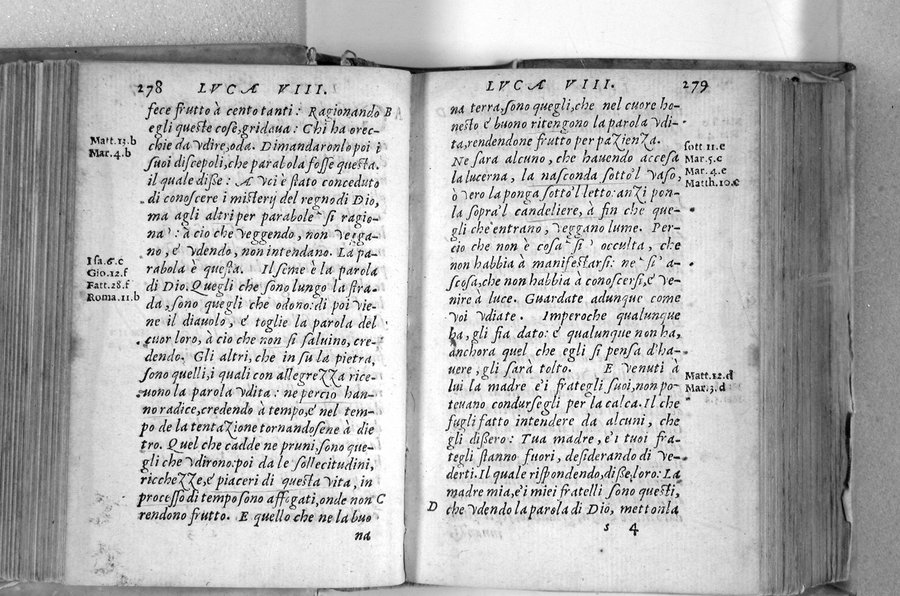 278 LVCÆ VIII.
fece frutto à cento tanti: Ragionando B
egli queste cose, gridaua: Chi ha orec-
chie da vdire, oda. Dimandaronlo poi i
Matt.13.b
Mar.4.b
suoi discepoli, che parabola fosse questa.
il quale disse: A vci è stato conceduto
di conoscere i misterij del regno di Dio,
ma agli altri per parabole si ragio-
na: à cio che veggendo, non veggа-
no, e vdendo, non intendano. La pa-
Isa.6.c
Gio.12.f
Fatt.28.f
Roma.11.b
rabola è questa. Il seme è la parola
di Dio. Quegli che sono lungo la stra-
da, sono quegli che odono: di poi vie-
ne il diauolo, e toglie la parola del
cuor loro, à cio che non si saluino, cre-
dendo. Gli altri, che in su la pietra,
sono quelli, i quali con allegrezza rice-
uono la parola vdita: ne percio han-
no radice, credendo à tempo, e nel tem-
po de la tentazione tornandosene à die
tro. Quel che cadde ne pruni, sono que-
gli che vdirono: poi da le sollecitudini,
ricchezze, e piaceri di questa vita, in
processo di tempo sono affogati, onde non C
rendono frutto. E quello che ne la buo
na
LVCÆ VIII. 279
na terra, sono quegli, che nel cuore ho-
nesto e buono ritengono la parola vdi-
ta, rendendone frutto per pazienza.
Ne sara alcuno, che hauendo accesa
la lucerna, la nasconda sotto'l vaso,
ò vero la ponga sotto'l letto: anzi pon-
sott 11.e
Mar.5.c
Mar.4.c
Matth.10.c
la sopra'l candeliere, à fin che que-
gli che entrano, veggano lume. Per-
cio che non è cosa si occulta, che
non habbia à manifestarsi: ne si a-
scosa, che non habbia à conoscersi, e ve-
nire à luce. Guardate adunque come
voi vdiate. Imperoche qualunque
ha, gli fia dato: e qualunque non ha,
anchora quel che egli si pensa d'ha-
uere, gli sarà tolto. E venuti à
lui la madre e i frategli suoi, non po-
Matt.12.d
Mar.3.d
teuano condursegli per la calca. Il che
fugli fatto intendere da alcuni, che
gli dissero: Tua madre, e i tuoi fra-
tegli stanno fuori, desiderando di ve-
derti. Il quale rispondendo, disse, loro: La
madre mia, e i miei fratelli sono questi,
D che vdendo la parola di Dio, mettonla
s 4